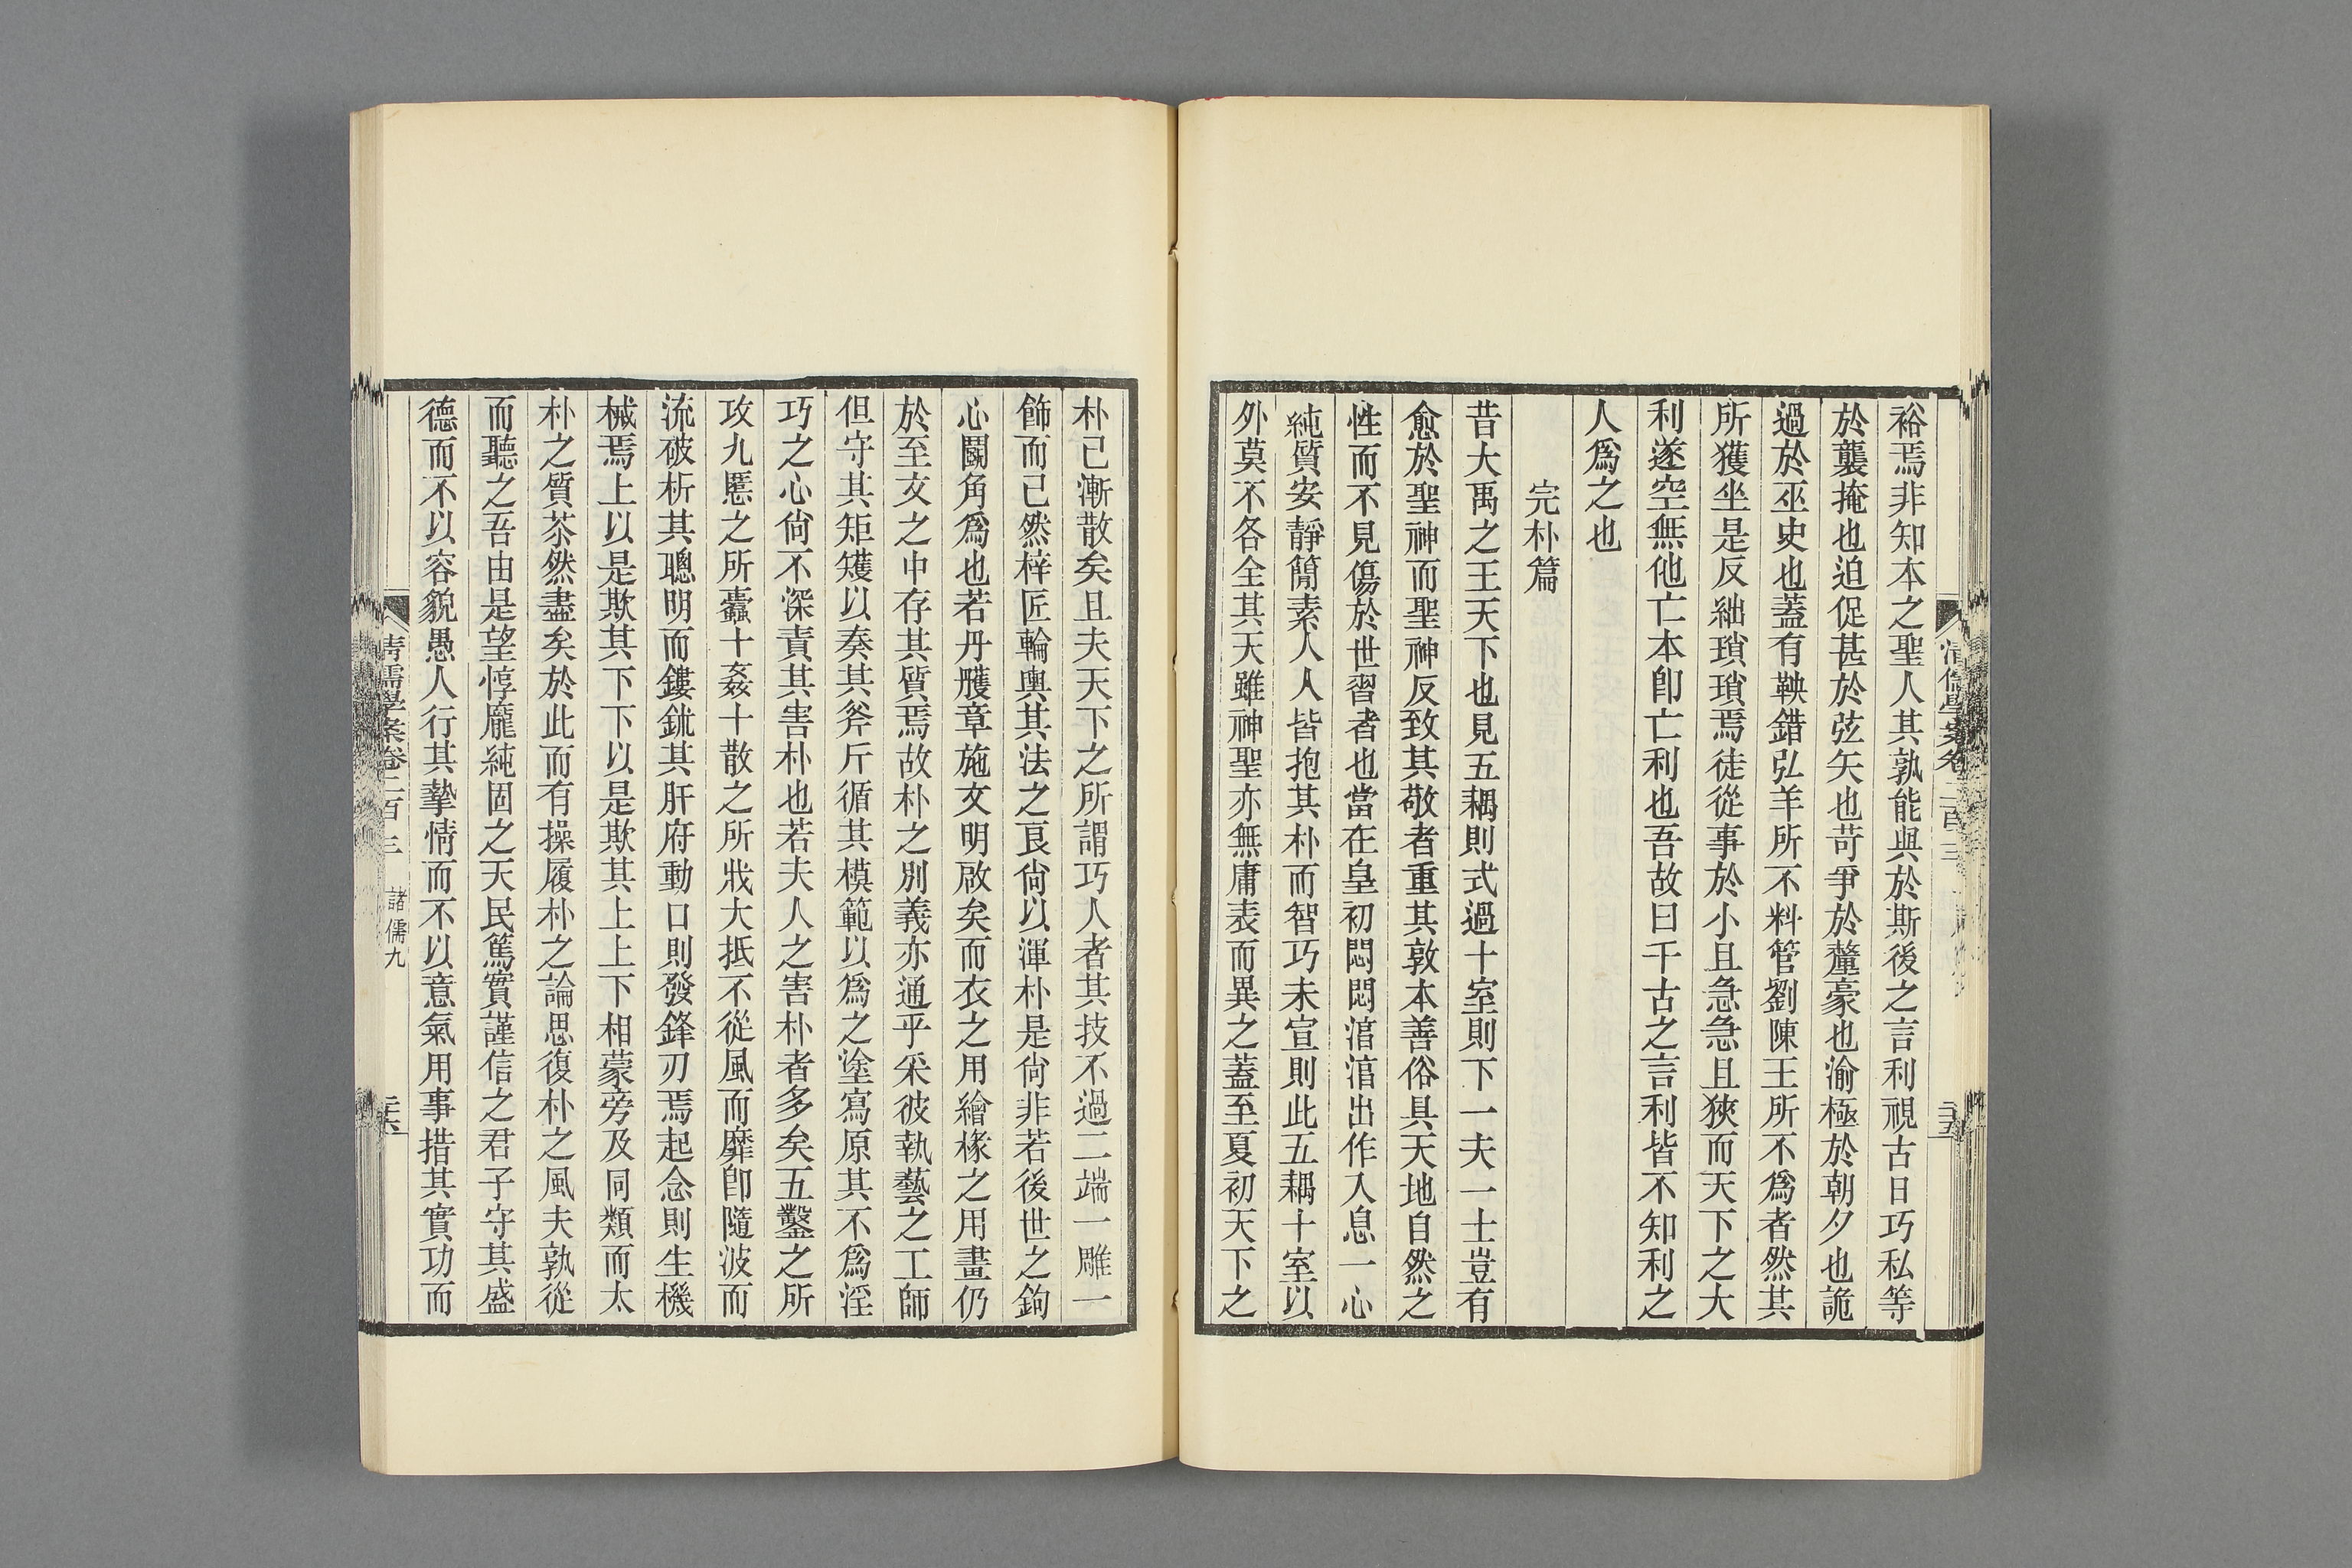 裕焉非知本之聖人其孰能與於斯後之言利視古日巧私等
於襲掩也迫促甚於弦矢也苛爭於釐豪也渝極於朝夕也詭
過於巫史也蓋有鞅錯弘羊所不料管劉陳王所不爲者然其
所獲坐是反紬瑣瑣焉徒從事於小且急急且狹而天下之大
利遂空無他亡本卽亡利也吾故曰千古之言利皆不知利之
人爲之也
完朴篇
昔大禹之王天下也見五耦則式過十室則下一夫一士豈有
愈於聖神而聖神反致其敬者重其敦本善俗具天地自然之
性而不見傷於世習者也當在皇初悶悶涫涫出作入息一心
純質安靜簡素人人皆抱其朴而智巧未宣則此五耦十室以
外莫不各全其天雖神聖亦無庸表而異之蓋至夏初天下之
朴已漸散矣且夫天下之所謂巧人者其技不過二端一雕一
飾而已然梓匠輪輿其法之良尙以渾朴是尙非若後世之鉤
心鬬角爲也若丹雘章施文明啟矣而衣之用繪椽之用畫仍
於至文之中存其質焉故朴之別義亦通乎采彼執藝之工師
但守其矩矱以奏其斧斤循其模範以爲之塗寫原其不爲淫
巧之心尙不深責其害朴也若夫人之害朴者多矣五鑿之所
攻九慝之所蠹十姦十散之所戕大抵不從風而靡卽隨波而
流破析其聰明而鏤鉥其肝府動口則發鋒刃焉起念則生機
械焉上以是欺其下下以是欺其上上下相蒙旁及同類而太
朴之質苶然盡矣於此而有操履朴之論思復朴之風夫孰從
而聽之吾由是望惇龐純固之天民篤實謹信之君子守其盛
德而不以容貌愚人行其摯情而不以意氣用事措其實功而
清儒學案卷二百三 諸儒九